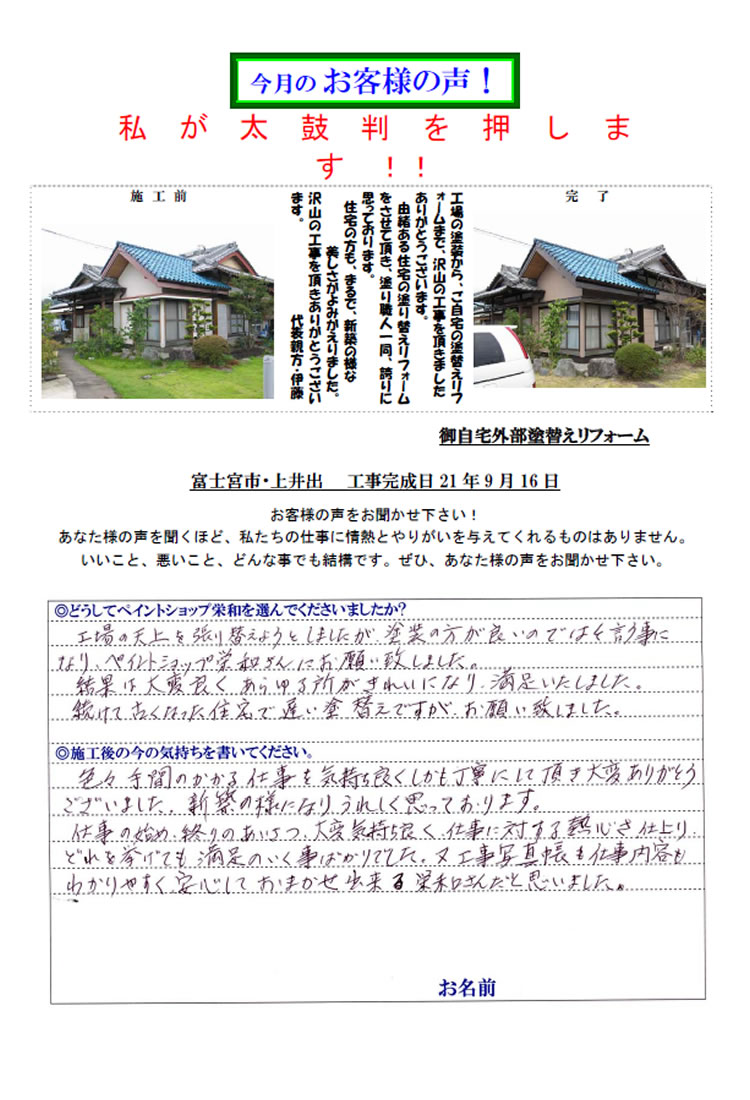 今月の お客様の声！
私が太鼓判を押しま
す！！
施工前
工場の塗装から、ご自宅の塗替えリフ
ォームまで、沢山の工事を頂きました
ありがとうございます。
由緒ある住宅の塗り替えリフォーム
をさせて頂き、塗り職人一同、誇りに
思っております。
住宅の方も、まるで、新築の様な
美しさがよみがえりました。
沢山の工事を頂きありがとうござい
ます。
代表親方・伊藤
完了
御自宅外部塗替えリフォーム
富士宮市・上井出 工事完成日21年9月16日
お客様の声をお聞かせ下さい！
あなた様の声を聞くほど、私たちの仕事に情熱とやりがいを与えてくれるものはありません。
いいこと、悪いこと、どんな事でも結構です。ぜひ、あなた様の声をお聞かせ下さい。
◎どうしてペイントショップ栄和を選んでくださいましたか？
工場の天上を張り替えようとしましたが、塗装の方が良いのではそ言う事に
なり、ペイントショップ栄和さんにお願い致しました。
結果は大変良く、あらゆる所がきれいになり、満足いたしました。
続けて古くなった住宅で遅い塗替えですが、お願い致しました。
◎施工後の今の気持ちを書いてください。
色々手間のかかる仕事を気持ち良くしかも丁寧にして頂き大変ありがとう
ございました。新築の様になりうれしく思っております。
仕事の始め、終りのあいさつ、大変気持ち良く、仕事に対する熱心さ仕上り、
どれを挙げても満足のいく事ばかりでした。又工事写真帳も仕事内容も
わかりやすく、安心しておまかせ出来る栄和さんだと思いました。
お名前